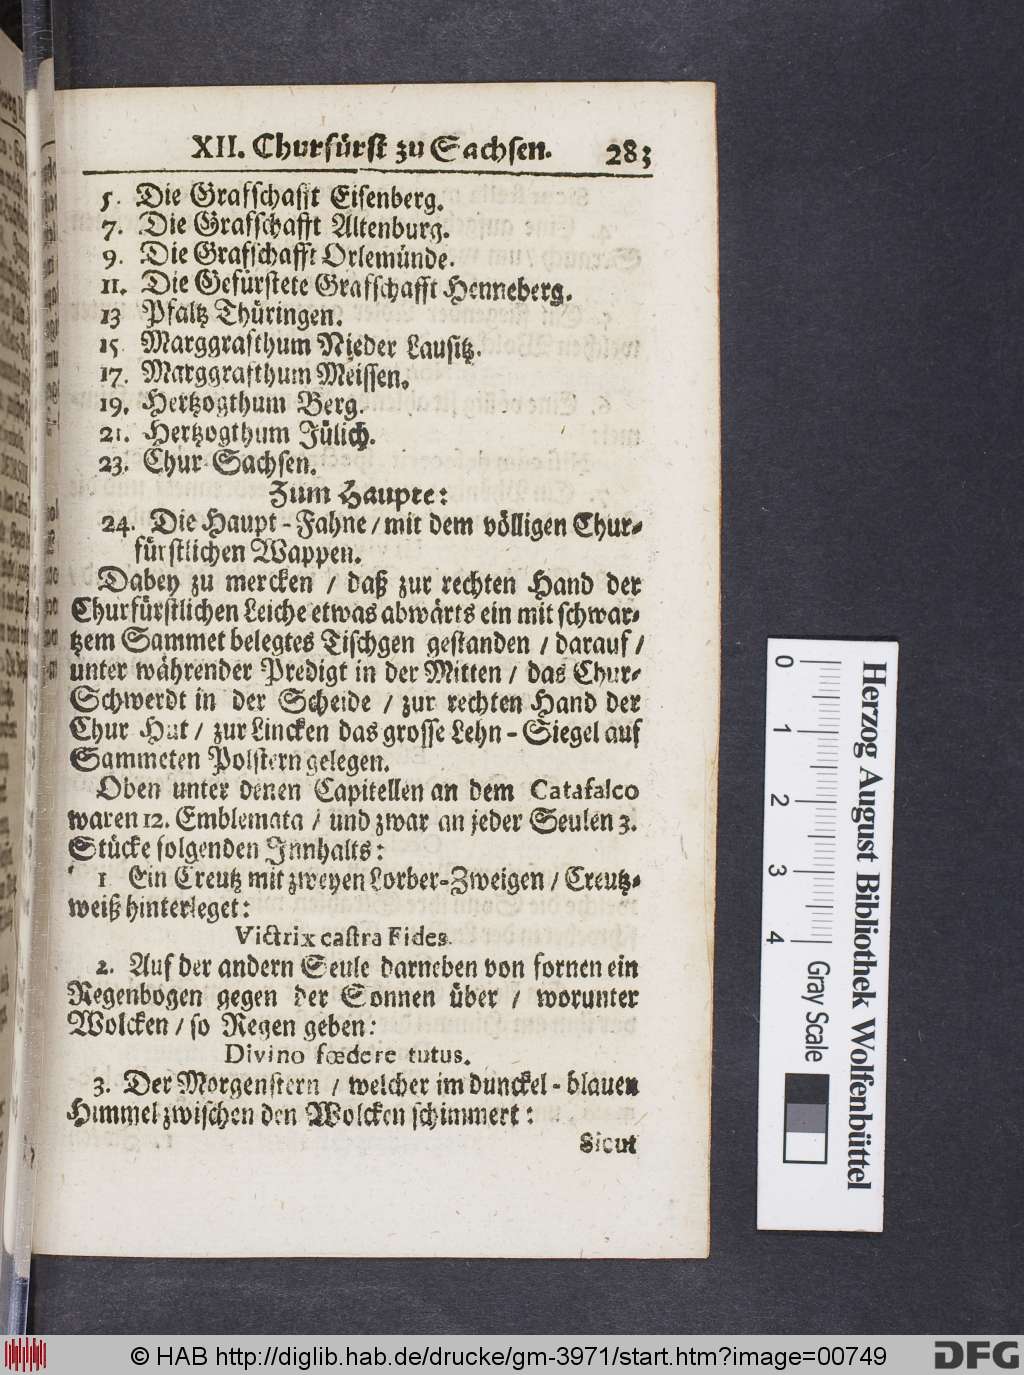 XII. Churfürst zu Sachsen. 283
5. Die Grafschafft Eisenberg.
7. Die Grafschafft Altenburg.
9. Die Grafschafft Orlemünde.
11. Die Gefürstete Grafschafft Henneberg.
13 Pfaltz Thüringen.
15. Marggrafthum Nieder Lausitz.
17. Marggrafthum Meissen.
19. Hertzogthum Berg.
21. Hertzogthum Jülich.
23. Chur Sachsen.
Zum Haupte:
24. Die Haupt-Fahne / mit dem völligen Chur-
fürstlichen Wappen.
Dabey zu mercken / daß zur rechten Hand der
Churfürstlichen Leiche etwas abwärts ein mit schwar-
tzem Sammet belegtes Tischgen gestanden / darauf /
unter währender Predigt in der Mitten / das Chur-
Schwerdt in der Scheide / zur rechten Hand der
Chur Hut / zur Lincken das grosse Lehn-Siegel auf
Sammeten Polstern gelegen.
Oben unter denen Capitellen an dem Catafalco
waren 12. Emblemata / und zwar an jeder Seulen 3.
Stücke folgenden Innhalts:
1 Ein Creutz mit zweyen Lorber-Zweigen / Creutz-
weiß hinterleget:
Victrix castra Fides.
2. Auf der andern Seule darneben von fornen ein
Regenbogen gegen der Sonnen über / worunter
Wolcken / so Regen geben:
Divino fœdere tutus.
3. Der Morgenstern / welcher im dunckel-blauen
Himmel zwischen den Wolcken schimmert:
Sicut
0 1 2 3 4
Gray Scale
Herzog August Bibliothek Wolfenbüttel
© HAB http://diglib.hab.de/drucke/gm-3971/start.htm?image=00749
DFG